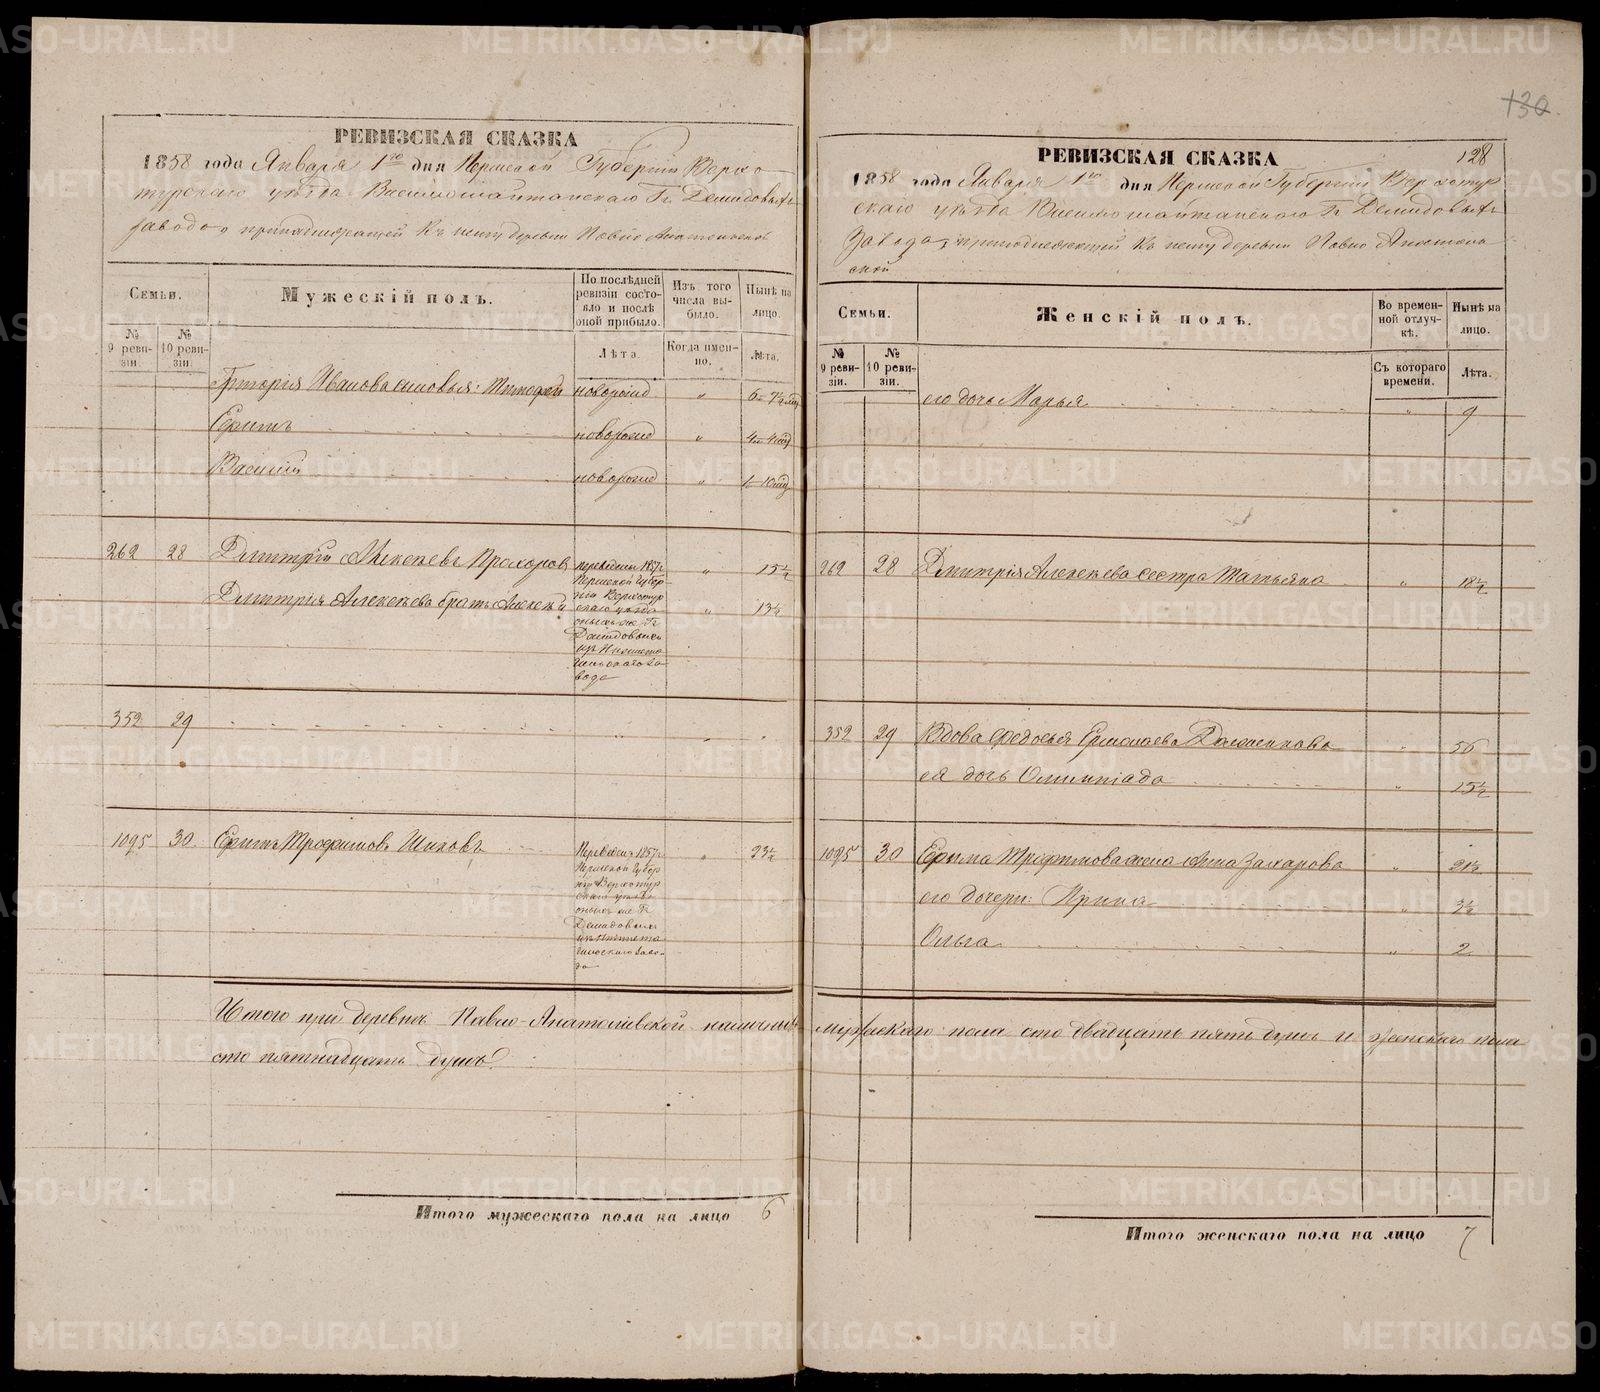 130
РЕВИЗСКАЯ СКАЗКА
1858 года Января 1го дня Пермской Губернiи Верхо
турскаго уѣзда Висимошайтанскаго Гг Демидовыхъ
завода принадлежащей къ нему деревни Павло Анатольской
Семьи.
№ 9 ревизiи.
№ 10 ревизiи.
Мужескiй полъ.
По послѣдней ревизiи состояло и послѣ оной прибыло.
Лѣта.
Изъ того числа выбыло.
Когда именно.
Нынѣ на лицо.
Лѣта.
Григорiя Иванова сыновья: Тимофей новорожд „ 6 7½ мѣс
Ефимъ новорожд „ 4 4 мѣс
Василiй новорожд „ 1 10 мѣс
262 28 Дмитрiй Алексѣевъ Прохоровъ „ 15½
Дмитрiя Алексѣева братъ Алексѣй „ 13½
переведены 1857 г
Пермской Губер
нiи Верхотур
скаго уѣзда
оныхъ же Гг
Демидовыхъ
изъ Нижнета
гильскаго за
вода
352 29
1095 30 Ефимъ Трофимовъ Шиховъ „ 23½
Переведенъ 1857 г
Пермской Губер
нiи Верхотур
скаго уѣзда
оныхъ же Гг
Демидовыхъ
изъ Нижнета
гильскаго заво
да
Итого при деревнѣ Павло-Анатольской наличныхъ мужескаго пола сто двадцать пять душъ и женскаго пола
сто пятнадцать душъ.
Итого мужескаго пола на лицо 6
РЕВИЗСКАЯ СКАЗКА
128
1858 года Января 1го дня Пермской Губернiи Верхотур
скаго уѣзда Висимошайтанскаго Гг Демидовыхъ
завода, принадлежащей къ нему деревни Павло Анатоль
ской
Семьи.
№ 9 ревизiи.
№ 10 ревизiи.
Женскiй полъ.
Во временной отлучкѣ.
Съ котораго времени.
Нынѣ на лицо.
Лѣта.
его дочь Марья „ 9
262 28 Дмитрiя Алексѣева сестра Татьяна „ 18½
352 29 Вдова Федосья Ермолаева „ 56
ея дочь Олимпiада „ 15½
1095 30 Ефима Трофимова жена Анна Захарова „ 21½
его дочери: Ирина „ 3½
Ольга „ 2
Итого женскаго пола на лицо 7
METRIKI.GASO-URAL.RU